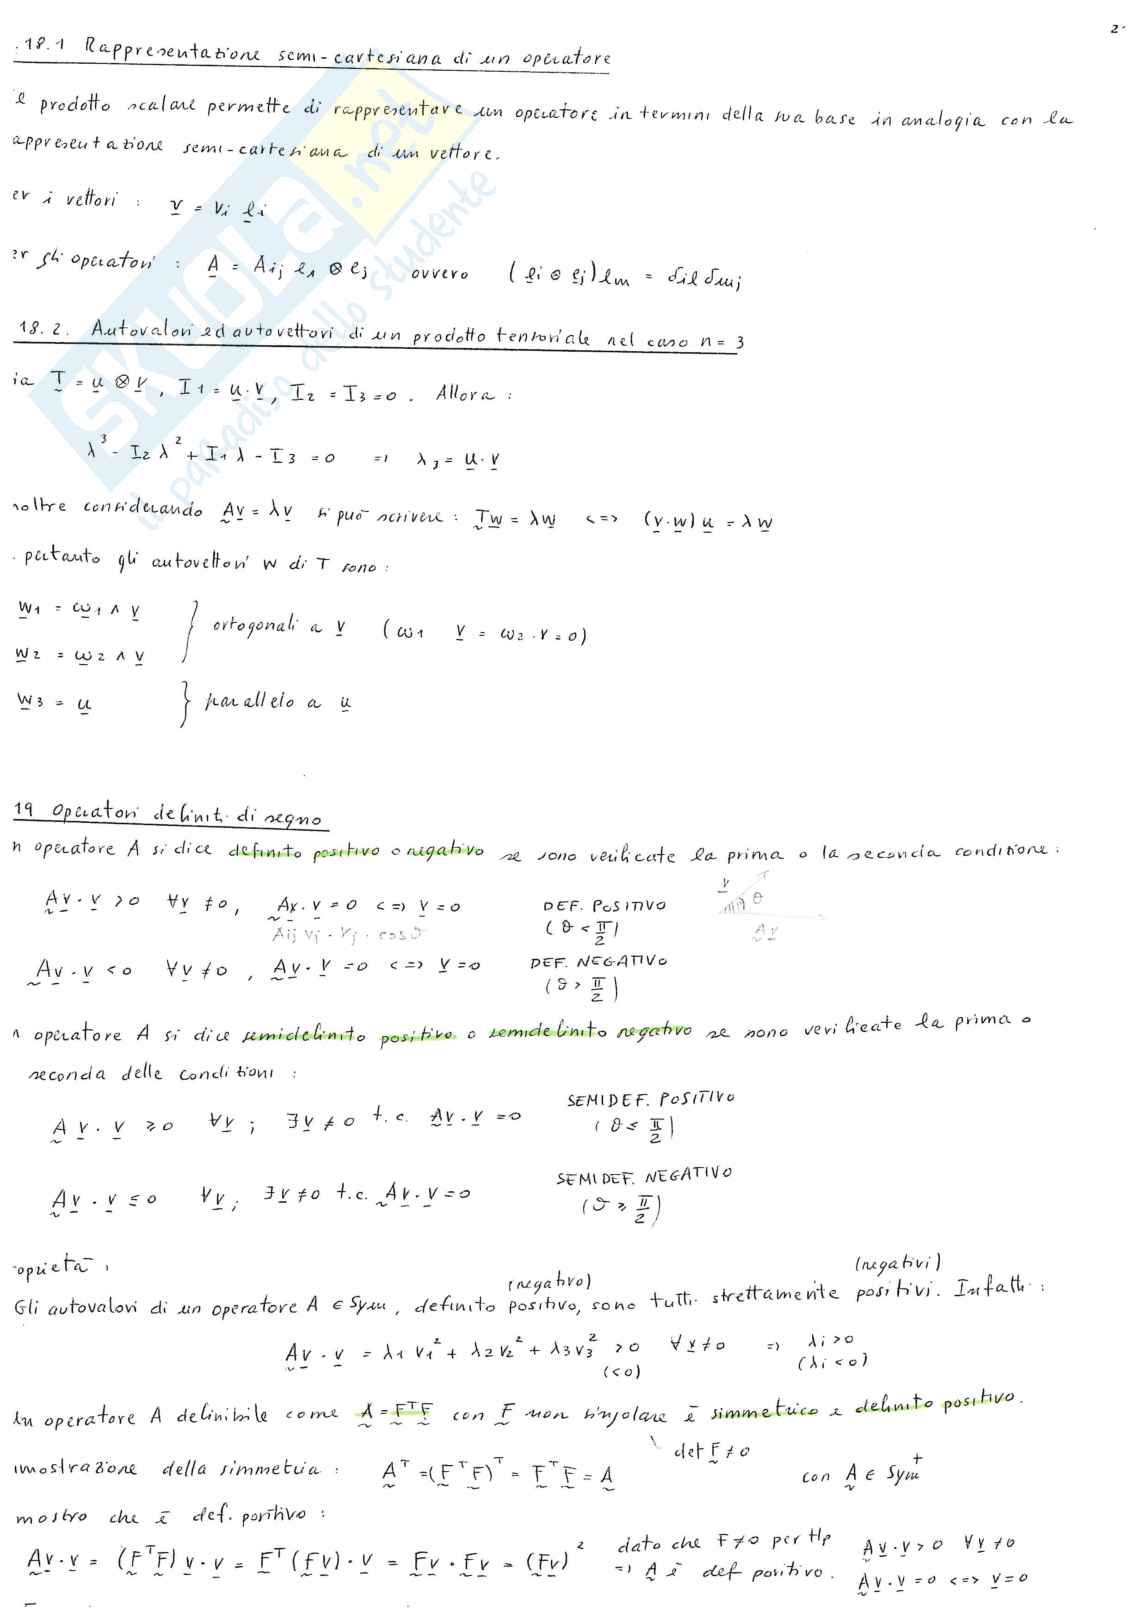 2
.18.1 Rappresentazione semi-cartesiana di un operatore
l prodotto scalare permette di rappresentare un operatore in termini della sua base in analogia con la
appresentazione semi-cartesiana di un vettore.
er i vettori : v = vi ei
er gli operatori : A = Aij ei ⊗ ej ovvero (ei ⊗ ej)em = δil δmj
18.2. Autovalori ed autovettori di un prodotto tensoriale nel caso n = 3
ia T = u ⊗ v, I1 = u·v, I2 = I3 = 0. Allora :
λ³ - I2 λ² + I1 λ - I3 = 0 => λ3 = u·v
noltre considerando Av = λv si può scrivere : Tw = λw <=> (v·w)u = λw
. pertanto gli autovettori w di T sono :
w1 = ω1 ∧ v
} ortogonali a v (ω1 v = ω2·v = 0)
w2 = ω2 ∧ v
w3 = u } parallelo a u
19 Operatori definiti di segno
n operatore A si dice definito positivo o negativo se sono verificate la prima o la seconda condizione :
Av·v > 0 ∀v ≠ 0, Av·v = 0 <=> v = 0 DEF. POSITIVO v θ
Aij vj · vj · cosϑ (ϑ < π/2) Av
Av·v < 0 ∀v ≠ 0, Av·v = 0 <=> v = 0 DEF. NEGATIVO
(ϑ > π/2)
n operatore A si dice semidefinito positivo o semidefinito negativo se sono verificate la prima o
seconda delle condizioni :
Av·v ≥ 0 ∀v ; ∃v ≠ 0 t.c. Av·v = 0 SEMIDEF. POSITIVO
(ϑ ≤ π/2)
Av·v ≤ 0 ∀v ; ∃v ≠ 0 t.c. Av·v = 0 SEMIDEF. NEGATIVO
(ϑ ≥ π/2)
oprietà :
(negativo) (negativi)
Gli autovalori di un operatore A ∈ Sym, definito positivo, sono tutti strettamente positivi. Infatti :
Av·v = λ1 v1² + λ2 v2² + λ3 v3² > 0 ∀v ≠ 0 => λi > 0
(<0) (λi < 0)
Un operatore A definibile come A = FᵀF con F non singolare è simmetrico e definito positivo.
det F ≠ 0
imostrazione della simmetria : Aᵀ = (FᵀF)ᵀ = FᵀF = A con A ∈ Sym⁺
mostro che è def. positivo :
Av·v = (FᵀF)v·v = Fᵀ(Fv)·v = Fv·Fv = (Fv)² dato che F ≠ 0 per Hp Av·v > 0 ∀v ≠ 0
=> A è def positivo. Av·v = 0 <=> v = 0
SKUOLA.net
il paradiso dello studente